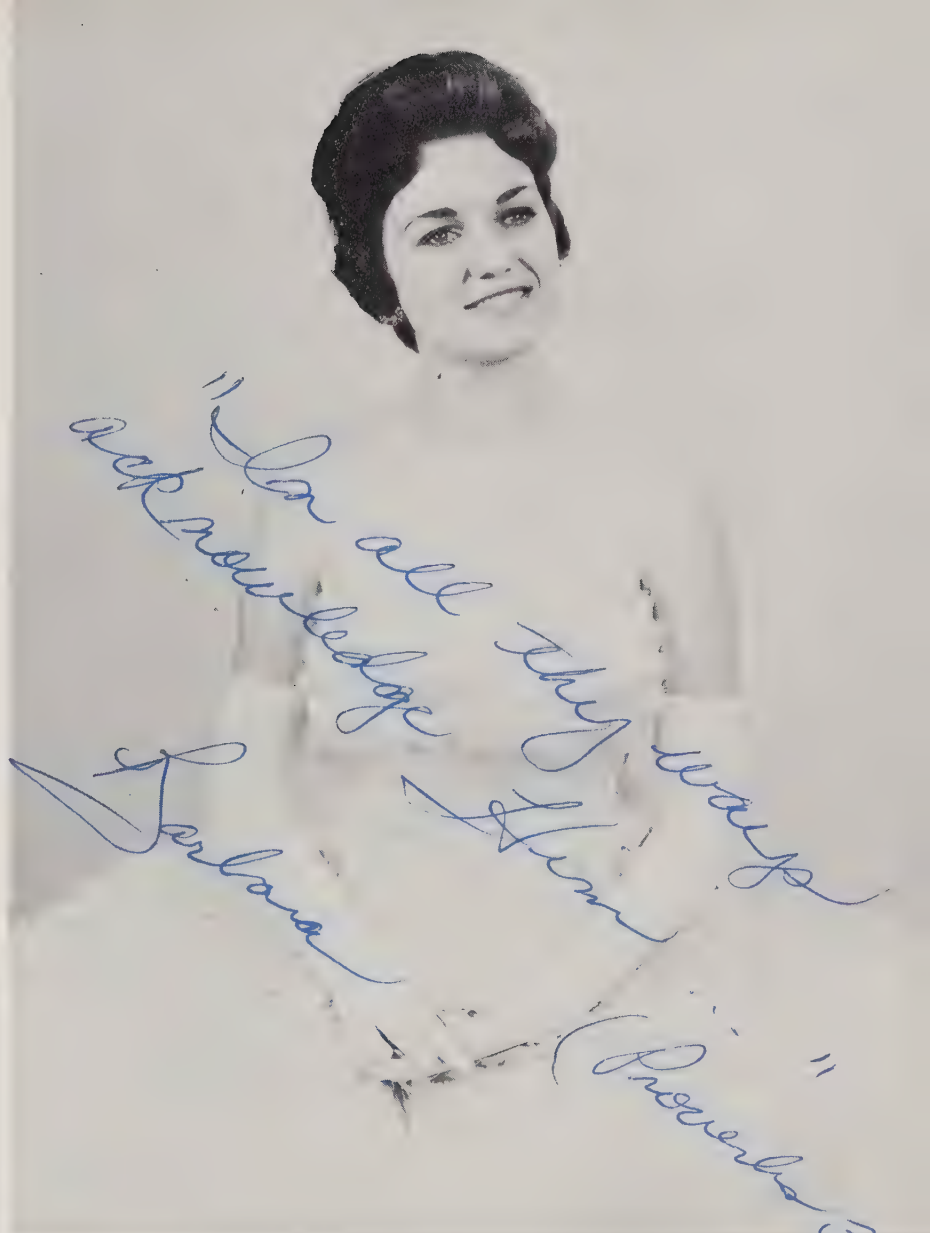 "In all thy ways
acknowledge Him"
(Proverbs
Barbara